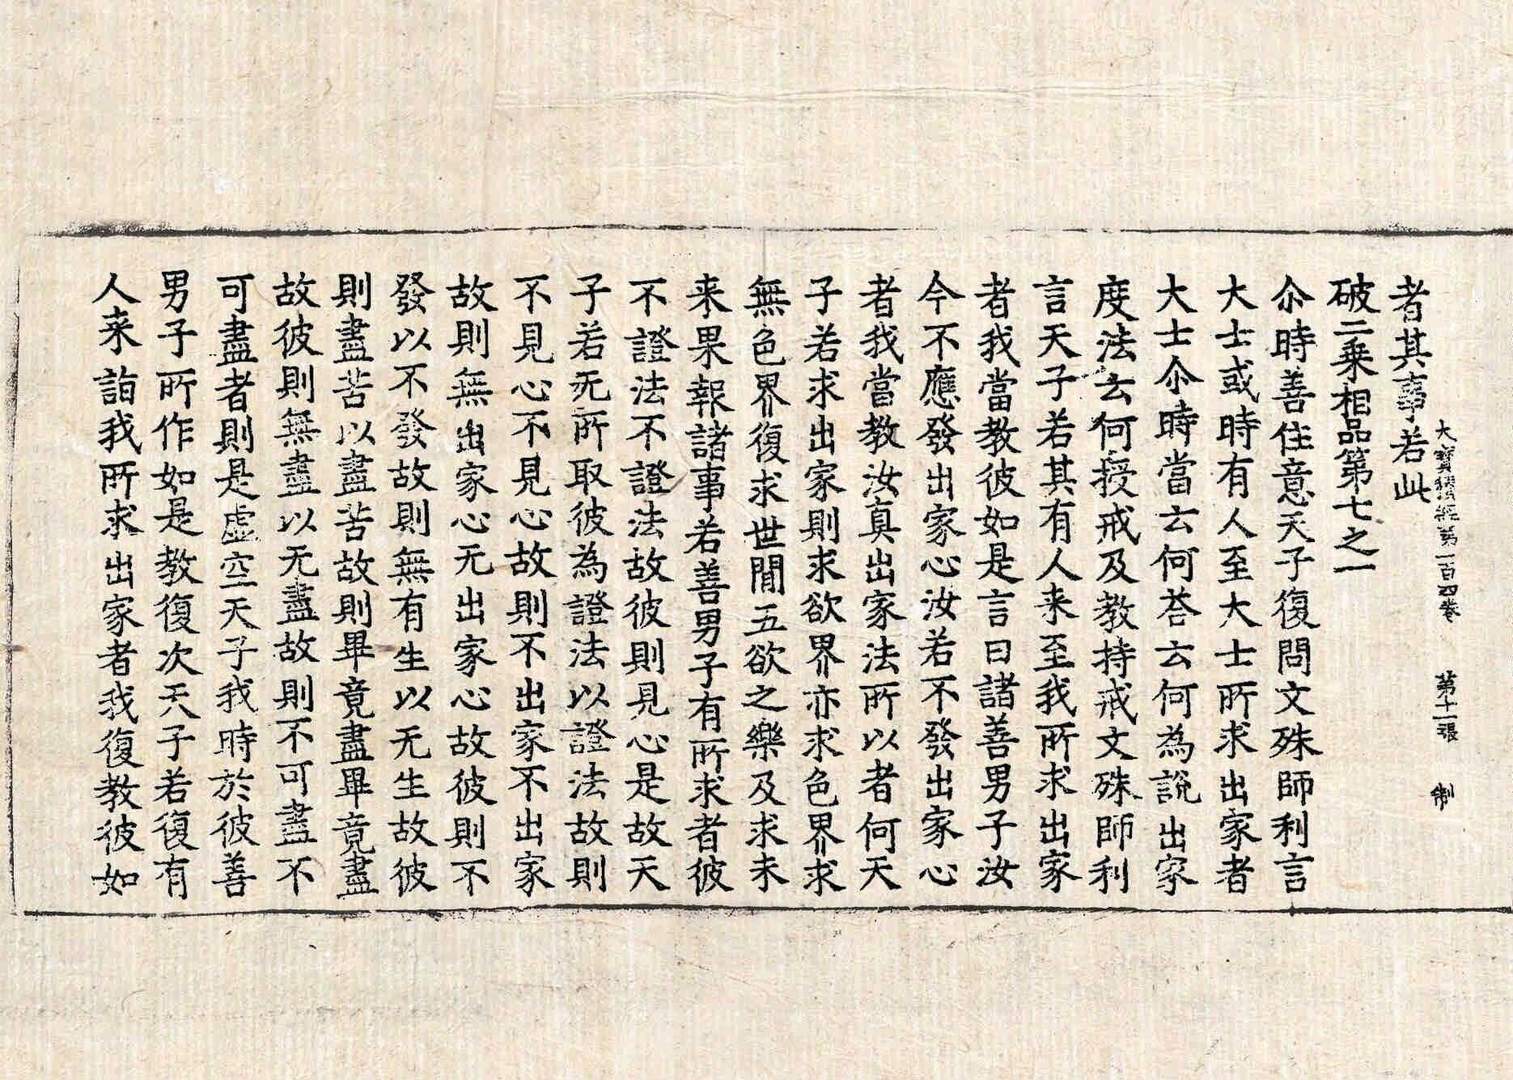 大寶積經第一百四卷　第十一張　制
者其事若此
破二乗相品第七之一
尒時善住意天子復問文殊師利言
大士或時有人至大士所求出家者
大士尒時當云何荅云何為說出家
度法云何授戒及教持戒文殊師利
言天子若其有人来至我所求出家
者我當教彼如是言曰諸善男子汝
今不應發出家心汝若不發出家心
者我當教汝真出家法所以者何天
子若求出家則求欲界亦求色界求
無色界復求世間五欲之樂及求未
来果報諸事若善男子有所求者彼
不證法不證法故彼則見心是故天
子若无所取彼為證法以證法故則
不見心不見心故則不出家不出家
故則無出家心无出家心故彼則不
發以不發故則無有生以无生故彼
則盡苦以盡苦故則畢竟盡畢竟盡
故彼則無盡以无盡故則不可盡不
可盡者則是虚空天子我時於彼善
男子所作如是教復次天子若復有
人来詣我所求出家者我復教彼如